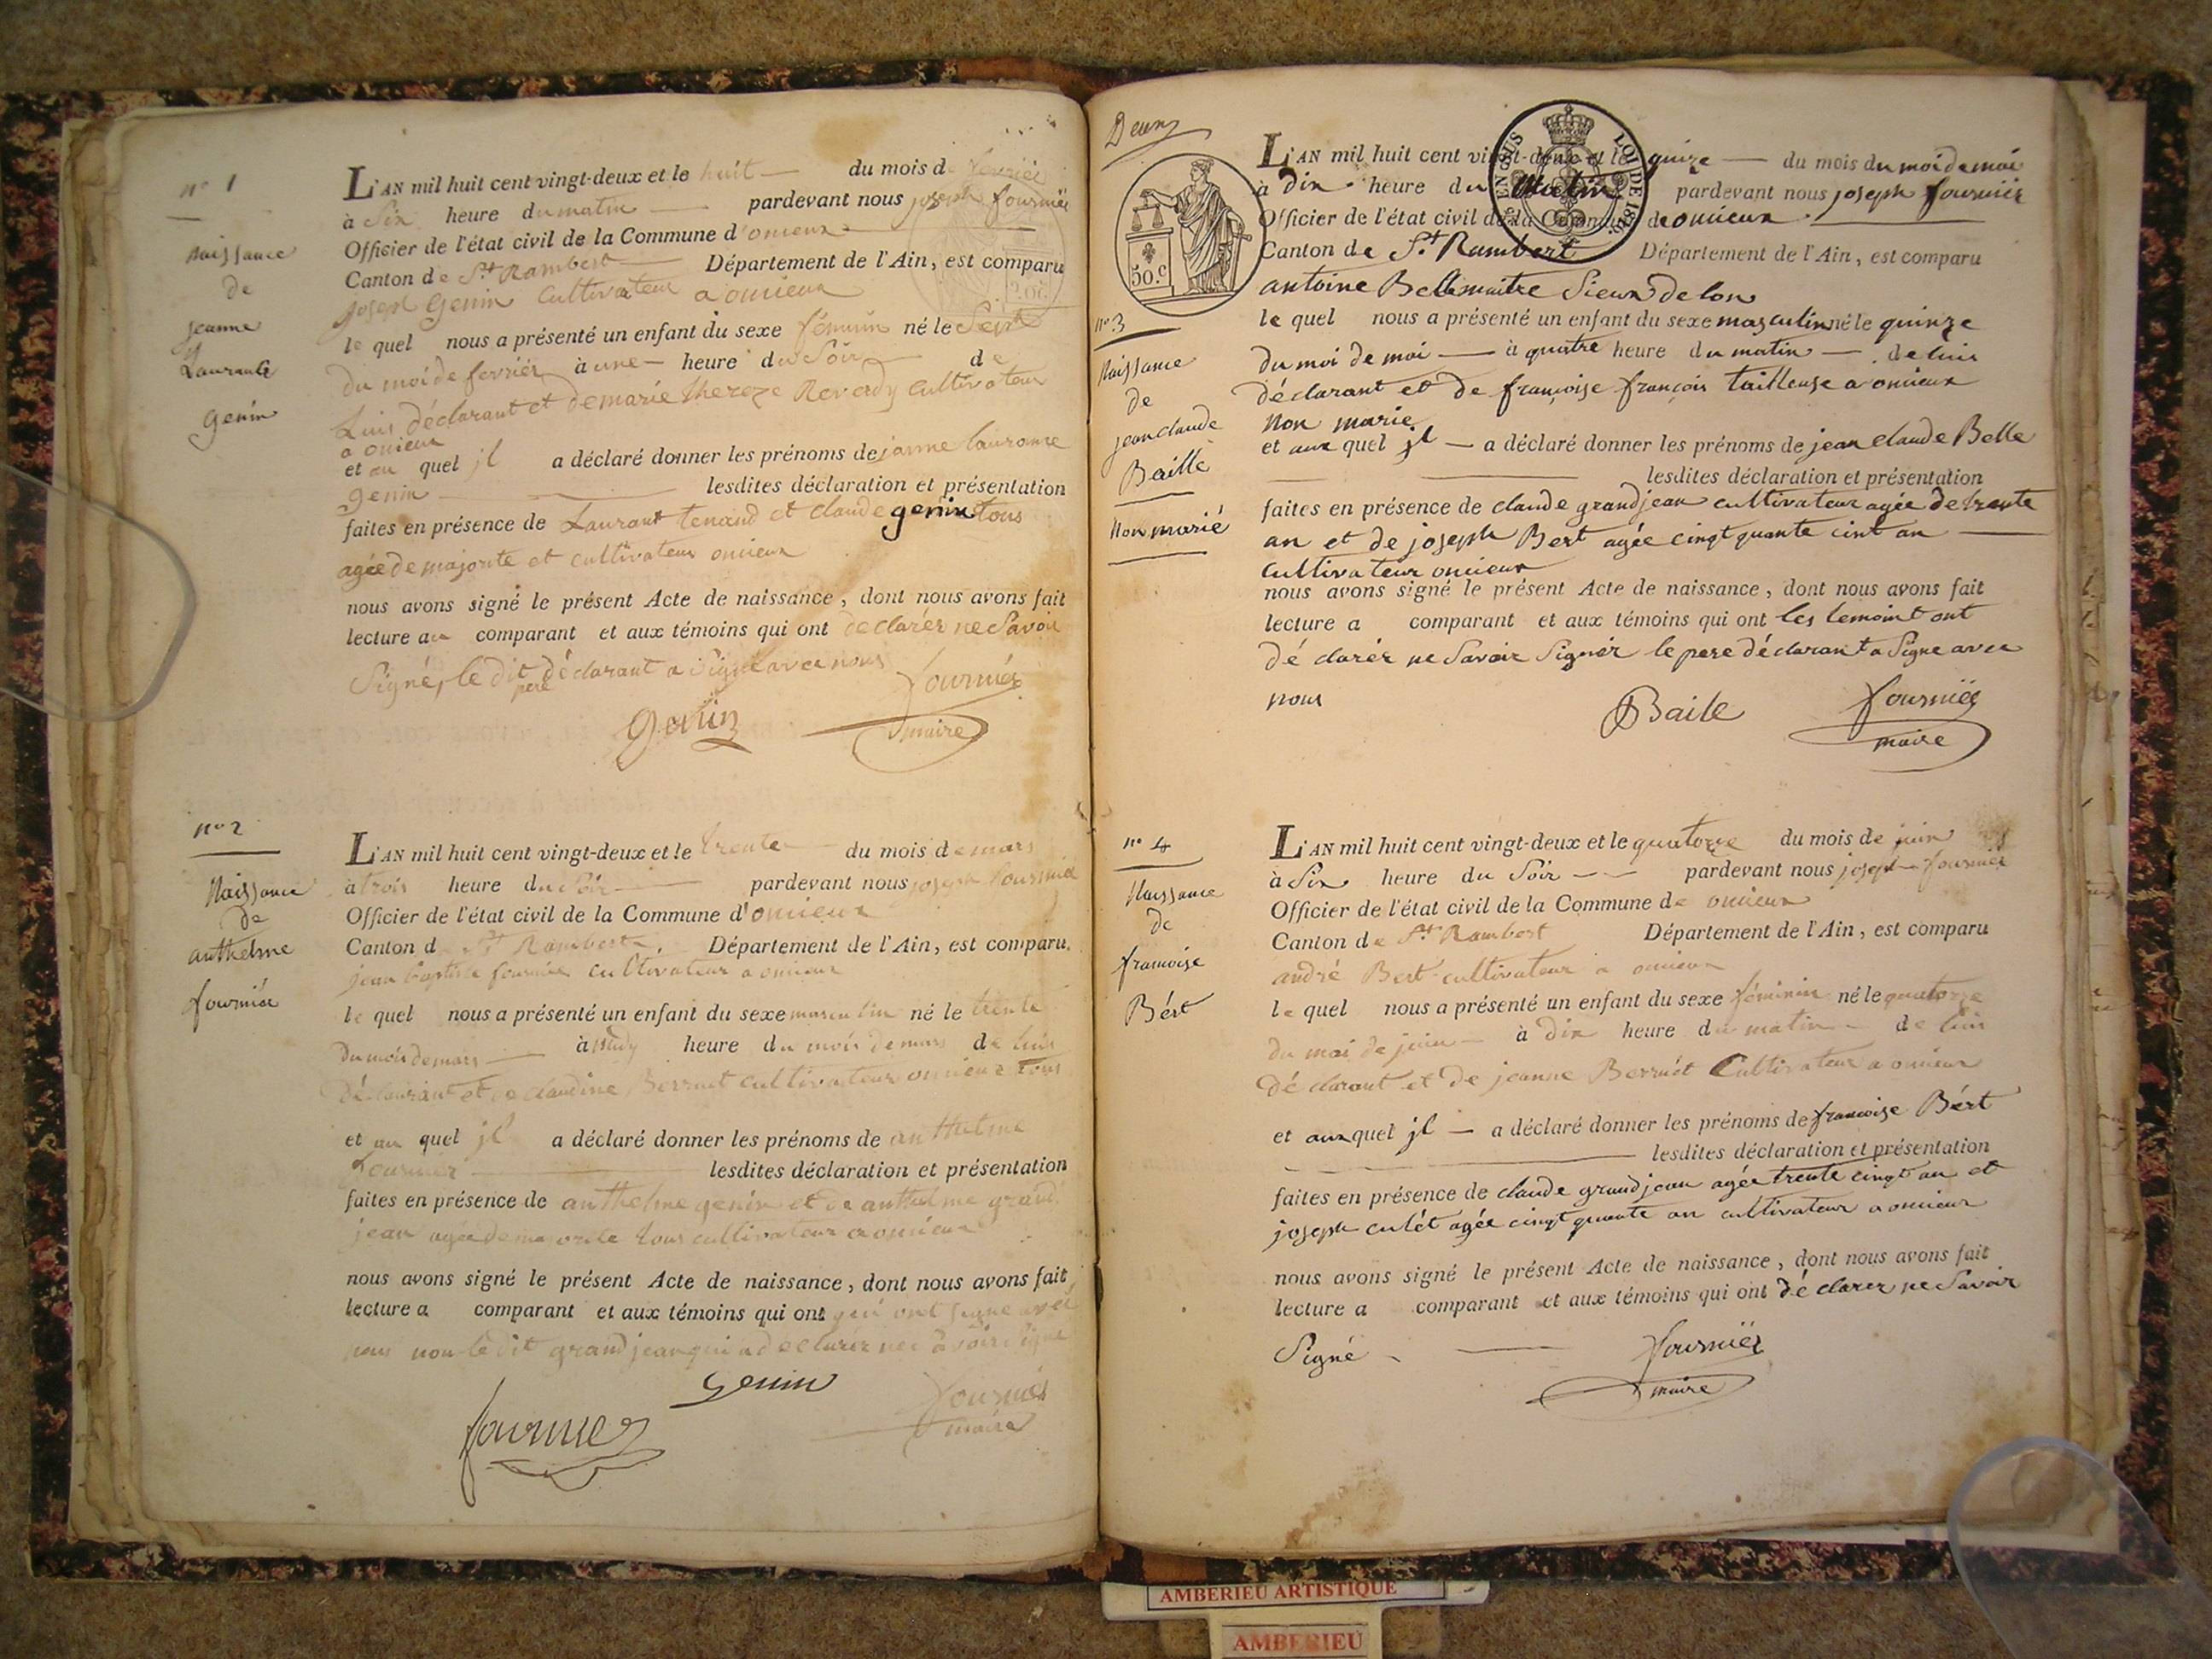 n° 1
Naissance
de
jeanne
Laurance
genin
L'AN mil huit cent vingt-deux et le huit du mois de fevrier
à Six heure du matin pardevant nous joseph fournier
Officier de l'état civil de la Commune d'oncieux
Canton de St Rambert Département de l'Ain, est comparu
joseph Genin cultivateur a oncieux
le quel nous a présenté un enfant du sexe féminin né le Sept
du moi de fevrier à une heure du Soir de
Luis déclarant et de marie thereze Reverdy cultivateur
a oncieux
et au quel jl a déclaré donner les prénoms de janne lauranse
genin lesdites déclaration et présentation
faites en présence de Laurant tenand et claude genin tous
agée de majorite et cultivateur oncieux
nous avons signé le présent Acte de naissance, dont nous avons fait
lecture au comparant et aux témoins qui ont declarér ne Savoir
Signé, le dit pere déclarant a Signé avec nous
fournier
Genin maire
n° 2
Naissance
de
anthelme
fournier
L'AN mil huit cent vingt-deux et le trente du mois de mars
à trois heure du Soir pardevant nous joseph fournier
Officier de l'état civil de la Commune d'oncieux
Canton d St Rambert Département de l'Ain, est comparu
jean baptiste fournier cultivateur a oncieux
le quel nous a présenté un enfant du sexe masculin né le trente
du mois de mars à midy heure du mois de mars de luis
déclarant et de claudine Berruet cultivateur oncieux tous
et au quel jl a déclaré donner les prénoms de anthelme
fournier lesdites déclaration et présentation
faites en présence de anthelme genin et de anthelme grand
jean agée de majorite tous cultivateur a oncieux
nous avons signé le présent Acte de naissance, dont nous avons fait
lecture a comparant et aux témoins qui ont qui ont signe avec
nous non le dit grandjean qui a declarer ne savoir signe
Genin fournier
fournier maire
Deux
50.c
EN SUS
LOI DE 1816
n° 3
Naissance
de
jean claude
Baille
Non marié
L'AN mil huit cent vingt-deux et le quinze du mois du moi de mai
à dix heure du Matin pardevant nous joseph fournier
Officier de l'état civil de la Commune de oncieux
Canton de St Rambert Département de l'Ain, est comparu
antoine Bellemaitre Sieur de lon
le quel nous a présenté un enfant du sexe masculin né le quinze
du moi de mai à quatre heure du matin de luis
déclarant et de françoise françois tailleuse a oncieux
Non marie
et aux quel jl a déclaré donner les prénoms de jean claude Belle
lesdites déclaration et présentation
faites en présence de claude grandjean cultivateur agée de trente
an et de joseph Bert agée cingtquante cint an
cultivateur oncieux
nous avons signé le présent Acte de naissance, dont nous avons fait
lecture a comparant et aux témoins qui ont les temoint ont
dé clarér ne Savoir Signér le pere déclarant a Signe avec
nous Baile fourniér
maire
n° 4
Naissance
de
francoise
Bért
L'AN mil huit cent vingt-deux et le quatorze du mois de juin
à Six heure du Soir pardevant nous joseph fournier
Officier de l'état civil de la Commune de oncieux
Canton de St Rambert Département de l'Ain, est comparu
andré Bert cultivateur a oncieux
le quel nous a présenté un enfant du sexe féminin né le quatorze
du moi de juin à dix heure du matin de luis
dé clarant et de jeanne Berruét Cultivateur a oncieux
et aux quel jl a déclaré donner les prénoms de francoise Bért
lesdites déclaration et présentation
faites en présence de claude grandjean agée trente cingt an et
joseph culét agée cingtquante an cultivateur a oncieux
nous avons signé le présent Acte de naissance, dont nous avons fait
lecture a comparant et aux témoins qui ont dé clarer ne Savoir
Signé fourniér
maire
AMBERIEU ARTISTIQUE
AMBERIEU